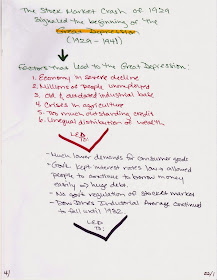 The Stock Market Crash of 1929
Signaled the beginning of the
Great Depression
(1929 - 1941)
Factors that led to the Great Depression:
1. Economy in severe decline
2. Millions of people unemployed
3. Old & outdated industrial base
4. Crises in agriculture
5. Too much outstanding credit
6. Unequal distribution of wealth
LED
TO:
- Much lower demands for consumer goods
- Govt. kept interest rates low & allowed
people to continue to borrow money
easily → huge debt.
- No govt regulation of stock market
- Dow Jones Industrial Average continued
to fall until 1932.
LED
TO:
4/